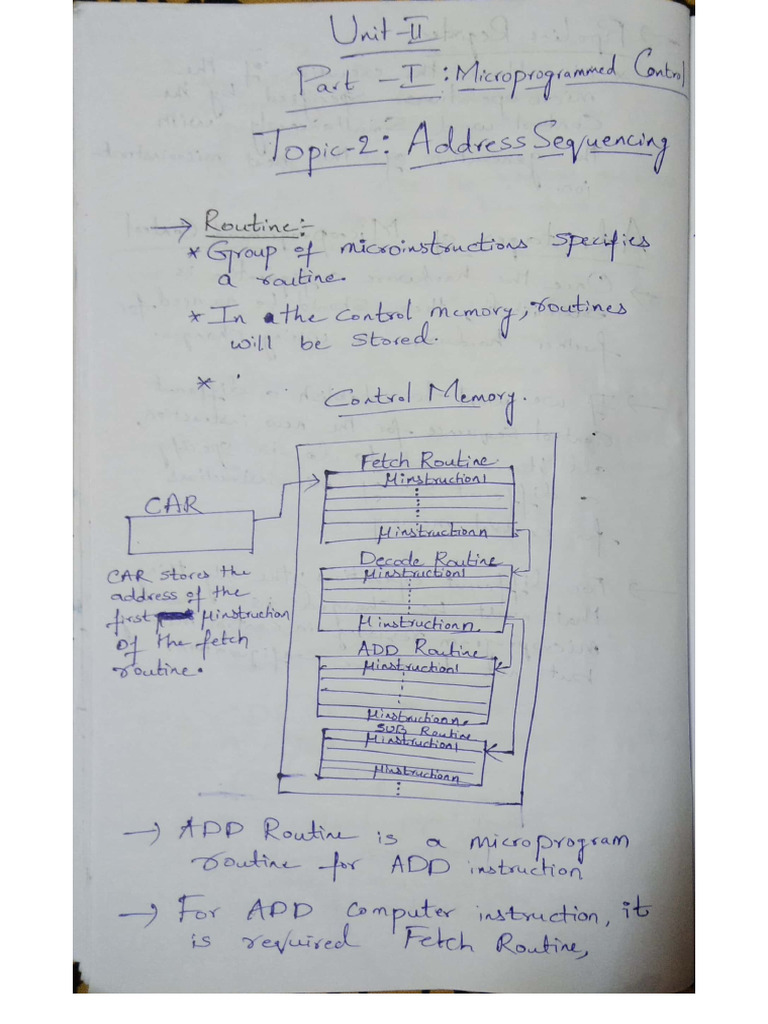 Unit-II
Part - I : Microprogrammed Control
Topic-2: Address Sequencing
→ Routine:-
* Group of microinstructions specifies
a routine.
* In the control memory, routines
will be stored.
*
Control Memory.
Fetch Routine
μinstruction1
μinstructionn
CAR
CAR stores the
address of the
first μinstruction
of the fetch
routine.
Decode Routine
μinstruction1
μinstructionn
ADD Routine
μinstruction1
μinstructionn
SUB Routine
μinstruction1
μinstructionn
→ ADD Routine is a microprogram
routine for ADD instruction
→ For ADD computer instruction, it
is required Fetch Routine,